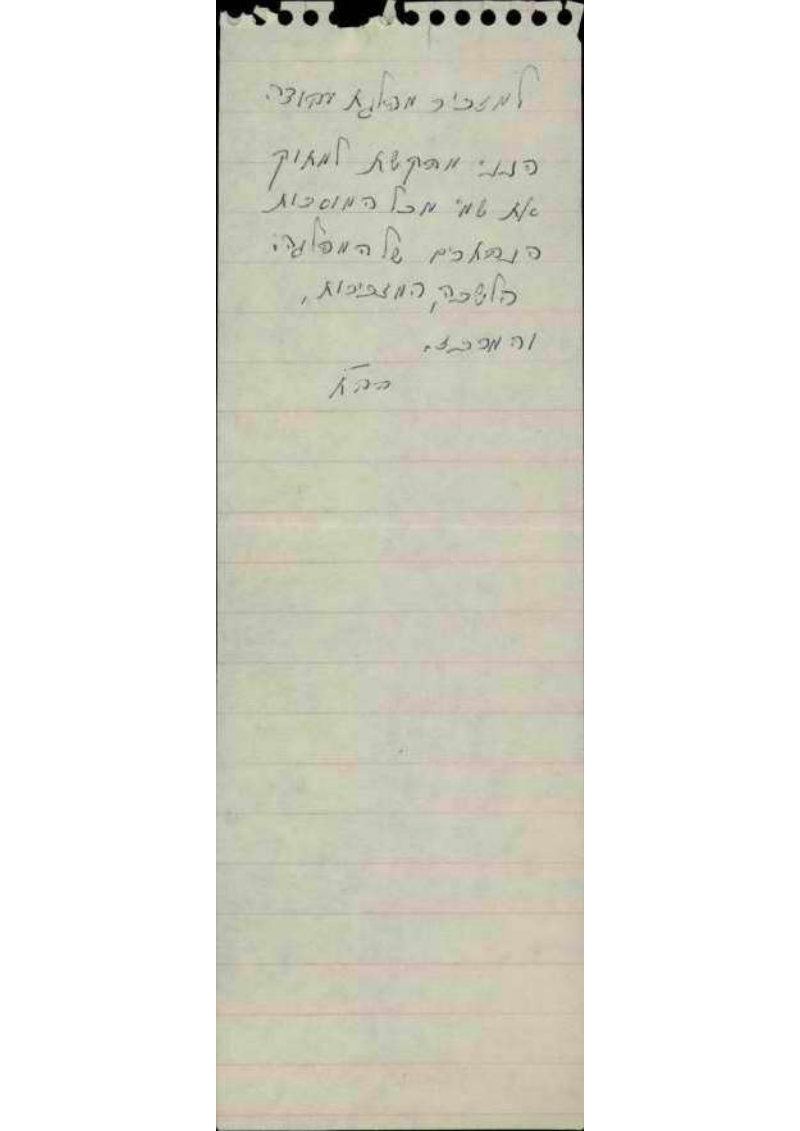 למזכיר מפלגת עבודה
הנני מבקשת למחוק
את שמי מכל המוסדות
הנבחרים של המפלגה:
הלשכה, המזכירות,
והמרכז.